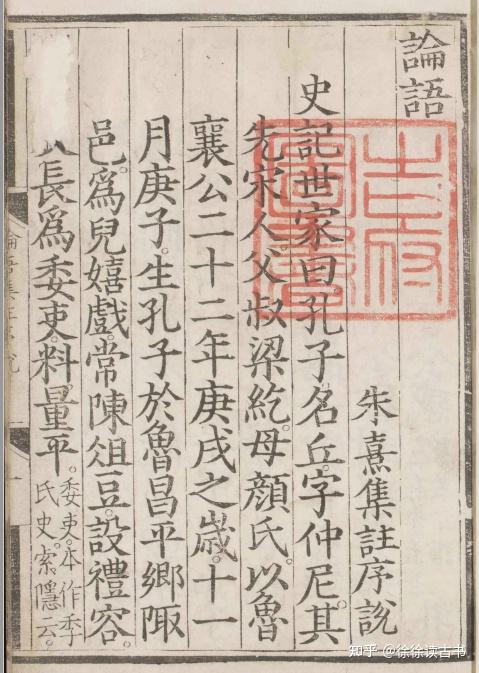 論語
朱熹集註序說
史記世家曰孔子名丘字仲尼其
先宋人父叔梁紇母顏氏以魯
襄公二十二年庚戌之歲十一
月庚子生孔子於魯昌平鄉陬
邑爲兒嬉戲常陳俎豆設禮容
長爲委吏料量平委吏本作季
氏史索隱云
知乎 @徐徐读古书